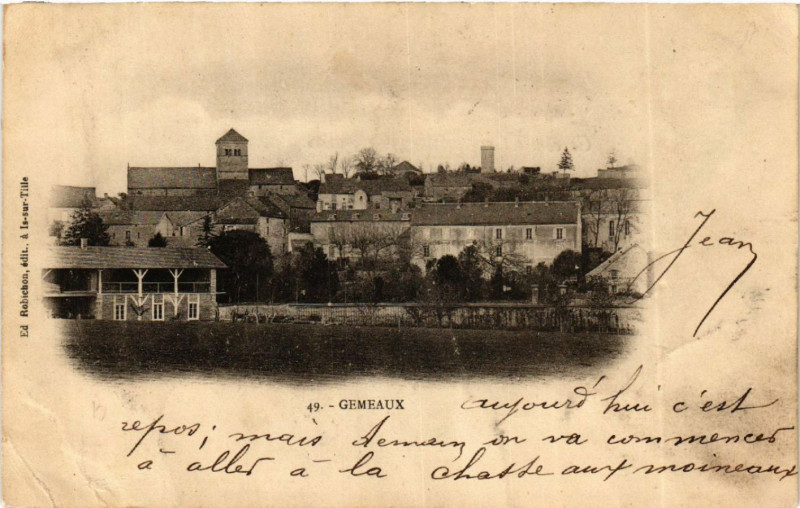 Ed Robichon, édit., à Is-sur-Tille
Jean
49. - GEMEAUX
aujourd'hui c'est
repos; mais demain on va commencer
à aller à la chasse aux moineaux